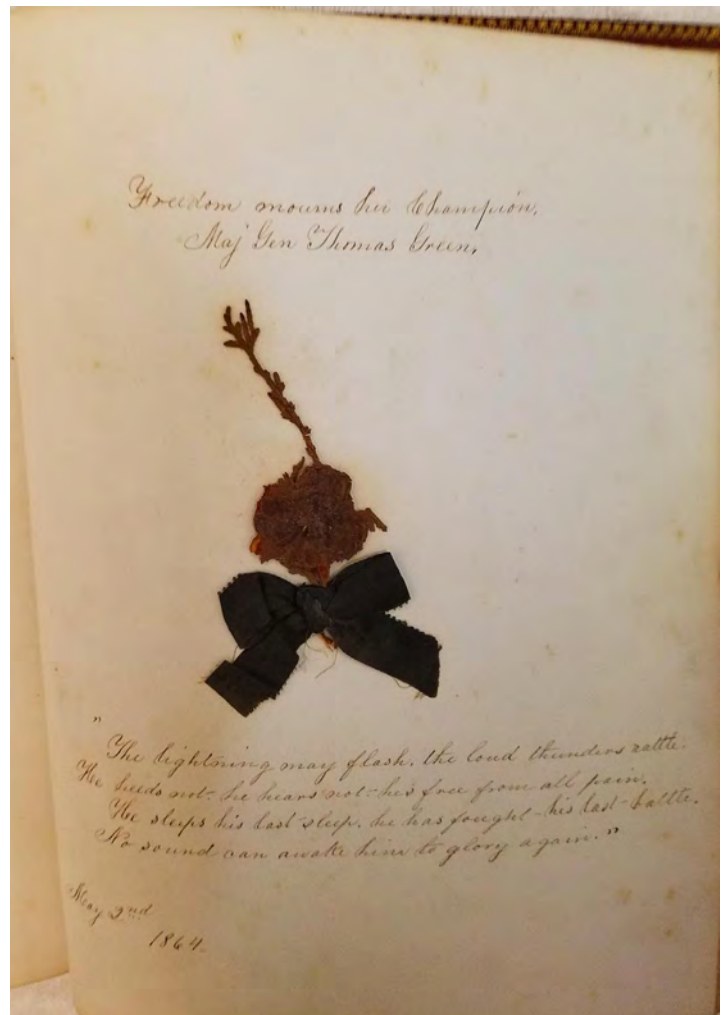 Freedom mourns her Champion.
Maj Gen Thomas Green.
"The lightning may flash. the loud thunders rattle.
He heeds not - he hears not - he's free from all pain.
He sleeps his last sleep. he has fought - his last - battle.
No sound can awake him to glory again."
May 2nd
1864.